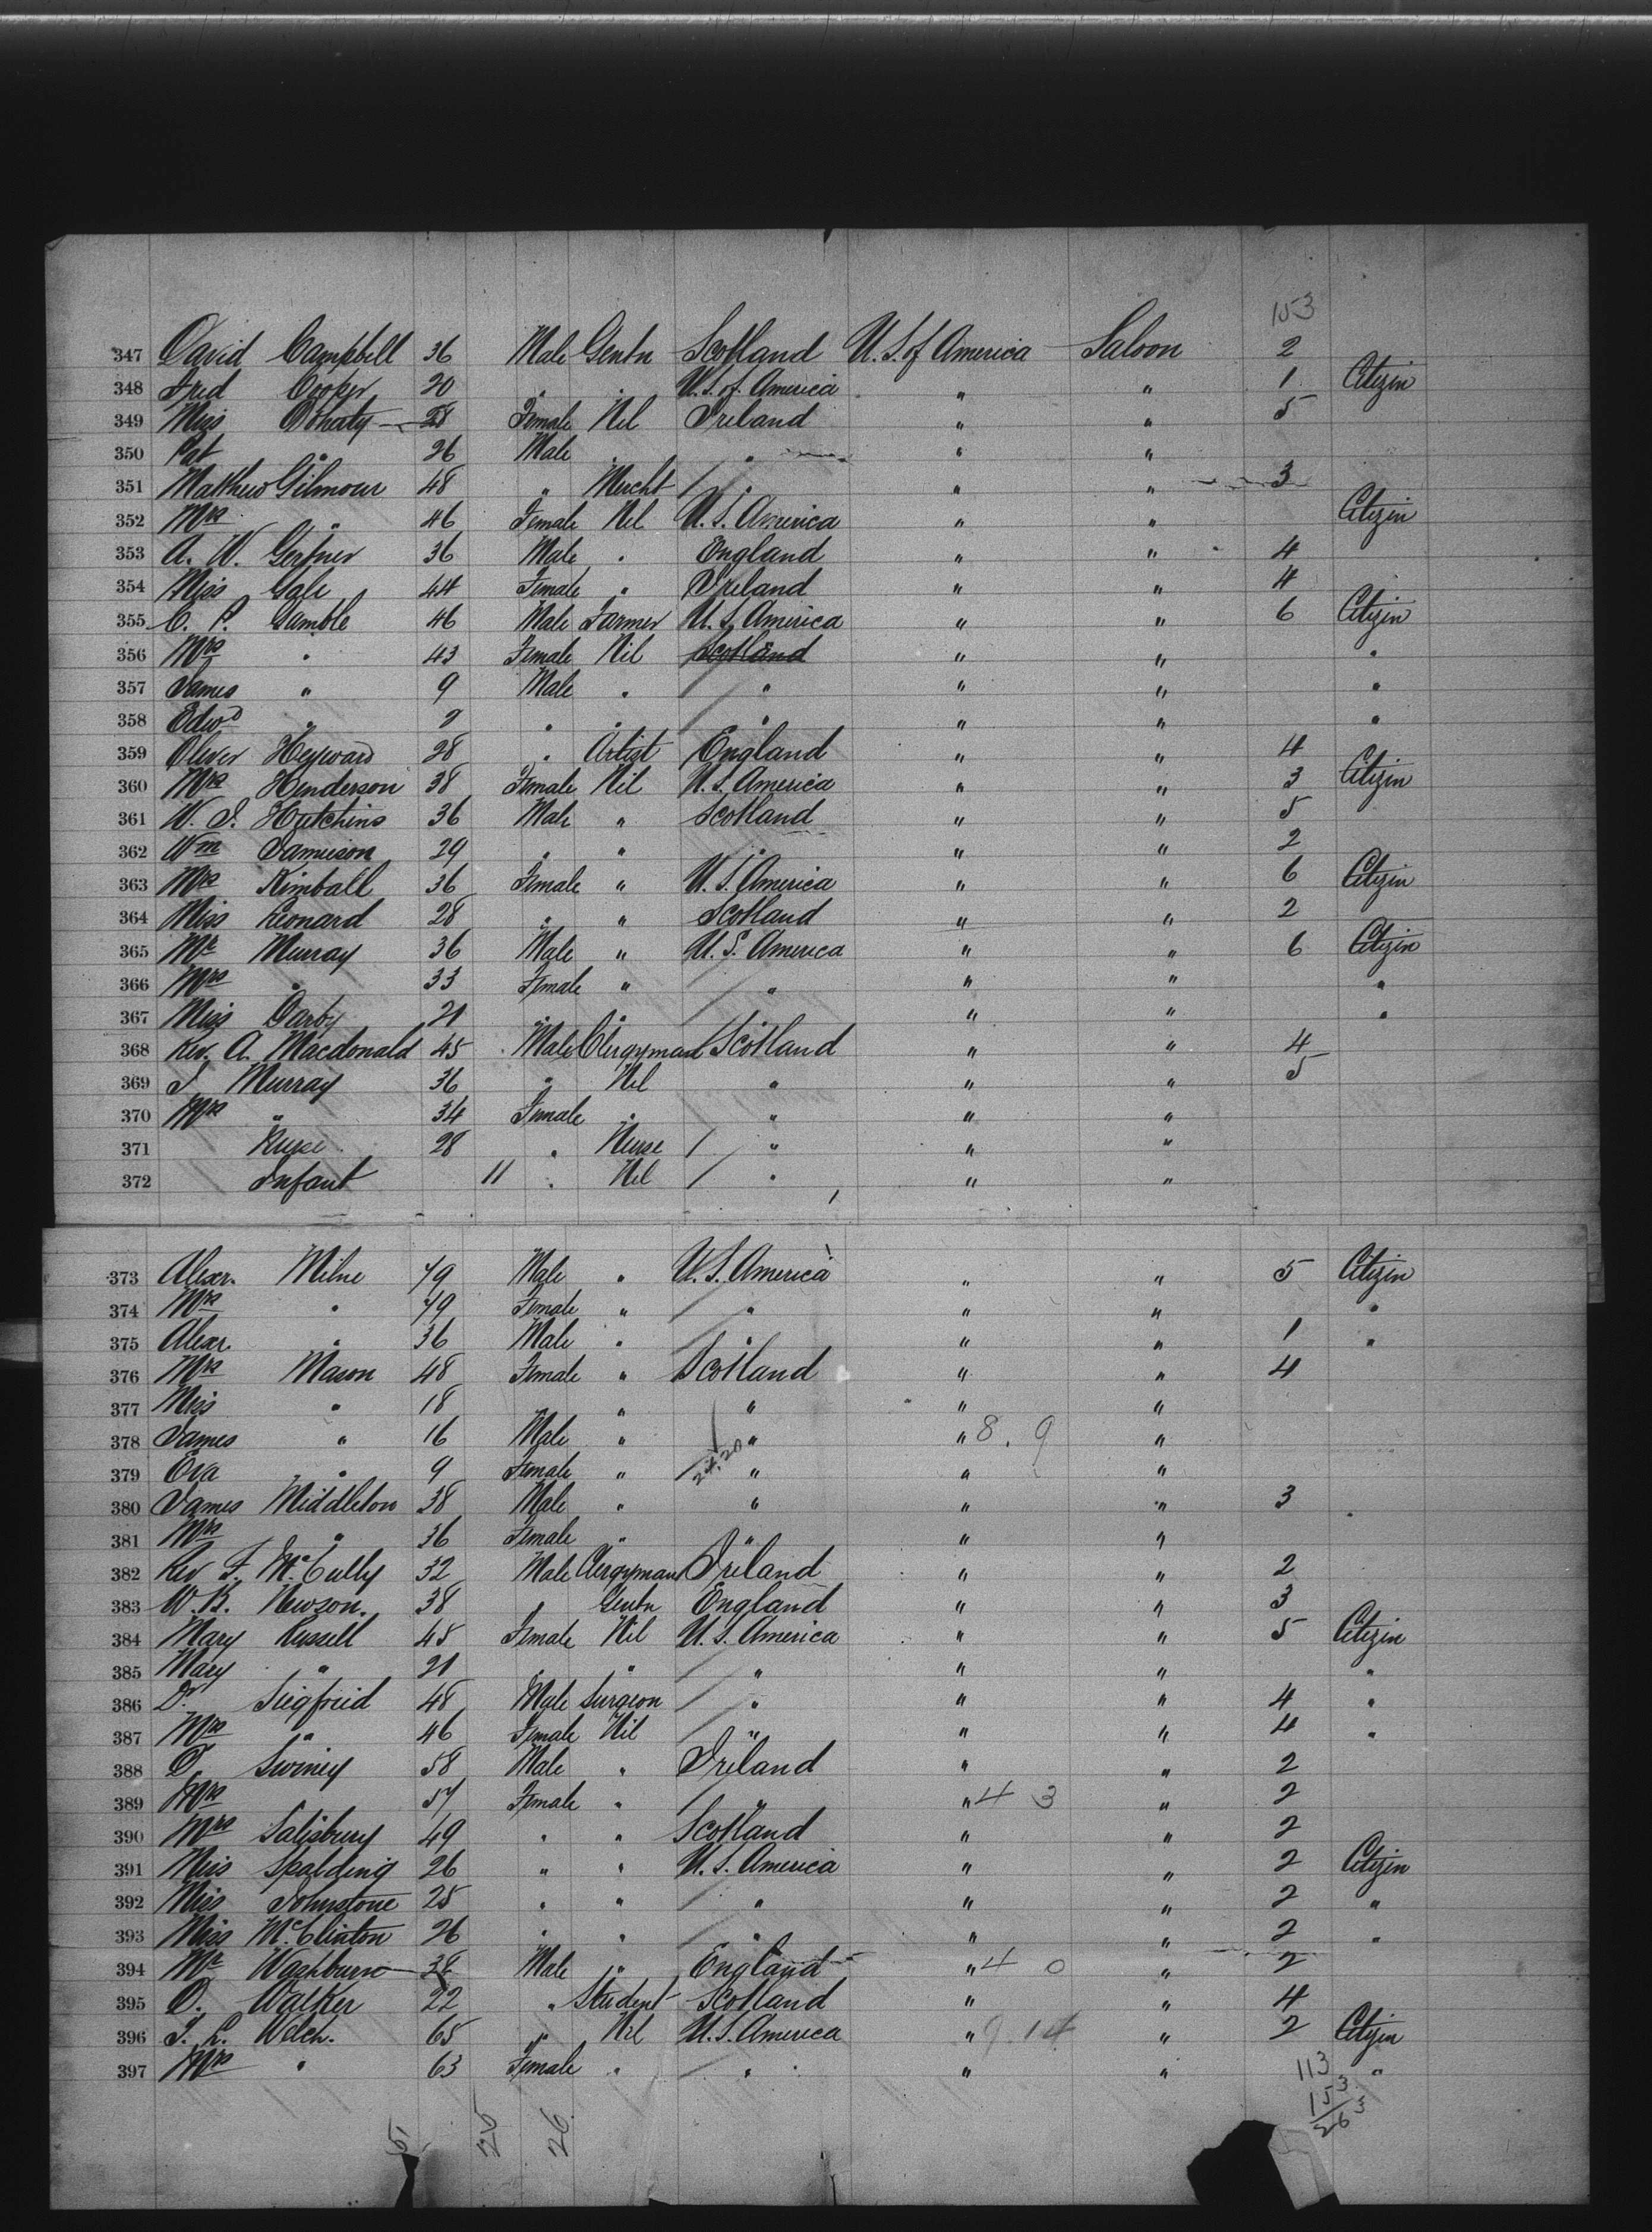 153
347 David Campbell 36 Male Gentn Scotland U.S. of America Saloon 2
348 Fred Cooper 20 " " U.S. of America " " 1 Citizin
349 Miss Dohaty 28 Female Nil Ireland " " 5
350 Pat " 26 Male " " " "
351 Matthew Gilmour 48 " Mercht " " " 3
352 Mrs " 46 Female Nil U.S. America " " Citizin
353 A. W. 36 Male " England " " 4
354 Miss Gale 44 Female " Ireland " " 4
355 C. P. Gamble 46 Male Farmer U.S. America " " 6 Citizin
356 Mrs " 43 Female Nil Scotland " " "
357 James " 9 Male " " " " "
358 Edwd " " " " " " "
359 Oliver Heyward 28 " Artist England " " 4
360 Mrs Henderson 38 Female Nil U.S. America " " 3 Citizin
361 W. J. Hutchins 36 Male " Scotland " " 5
362 Wm Jamieson 29 " " " " " 2
363 Mrs Kimball 36 Female " U.S. America " " 6 Citizin
364 Miss Leonard 28 " " Scotland " " 2
365 Mr Murray 36 Male " U.S. America " " 6 Citizin
366 Mrs " 33 Female " " " " "
367 Miss Darby 21 " " " " " "
368 Rev. A. Macdonald 45 Male Clergyman Scotland " " 4
369 J Murray 36 " Nil " " " 5
370 Mrs " 34 Female " " " "
371 Nurse 28 " Nurse " " "
372 Infant 11 " Nil " " "
373 Alexr. Milne 49 Male " U.S. America " " 5 Citizin
374 Mrs " 49 Female " " " " "
375 Alexr. " 36 Male " " " " 1 "
376 Mrs Mason 48 Female " Scotland " " 4
377 Miss " 18 " " " "
378 James " 16 Male " " " 8. 9 "
379 Eva " 9 Female " " " "
380 James Middleton 38 Male " " " " 3
381 Mrs " 36 Female " " " "
382 Rev F. McCully 32 Male Clergyman Ireland " " 2
383 W. B. Newson. 38 " Gentn England " " 3
384 Mary Russell 45 Female Nil U.S. America " " 5 Citizin
385 Mary " 21 " " " " " "
386 Dr. Siegfried 48 Male Surgeon " " " 4 "
387 Mrs " 46 Female Nil " " " 4 "
388 D. Swiney 58 Male " Ireland " " 2
389 Mrs " 57 Female " " " 4 3 " 2
390 Mrs Salisbury 49 " " Scotland " " 2
391 Miss Spalding 26 " " U.S. America " " 2 Citizin
392 Miss Johnstone 25 " " " " " 2 "
393 Miss McClinton 26 " " " " " 2 "
394 Mr Washburn 38 Male " England " 4 0 " 2
395 D. Walker 22 " Student Scotland " " 4
396 J. L. Welch. 65 " Nil U.S. America " 9.14 " 2 Citizin
397 Mrs " 63 Female " " " " "
113
153
263
51 25 26